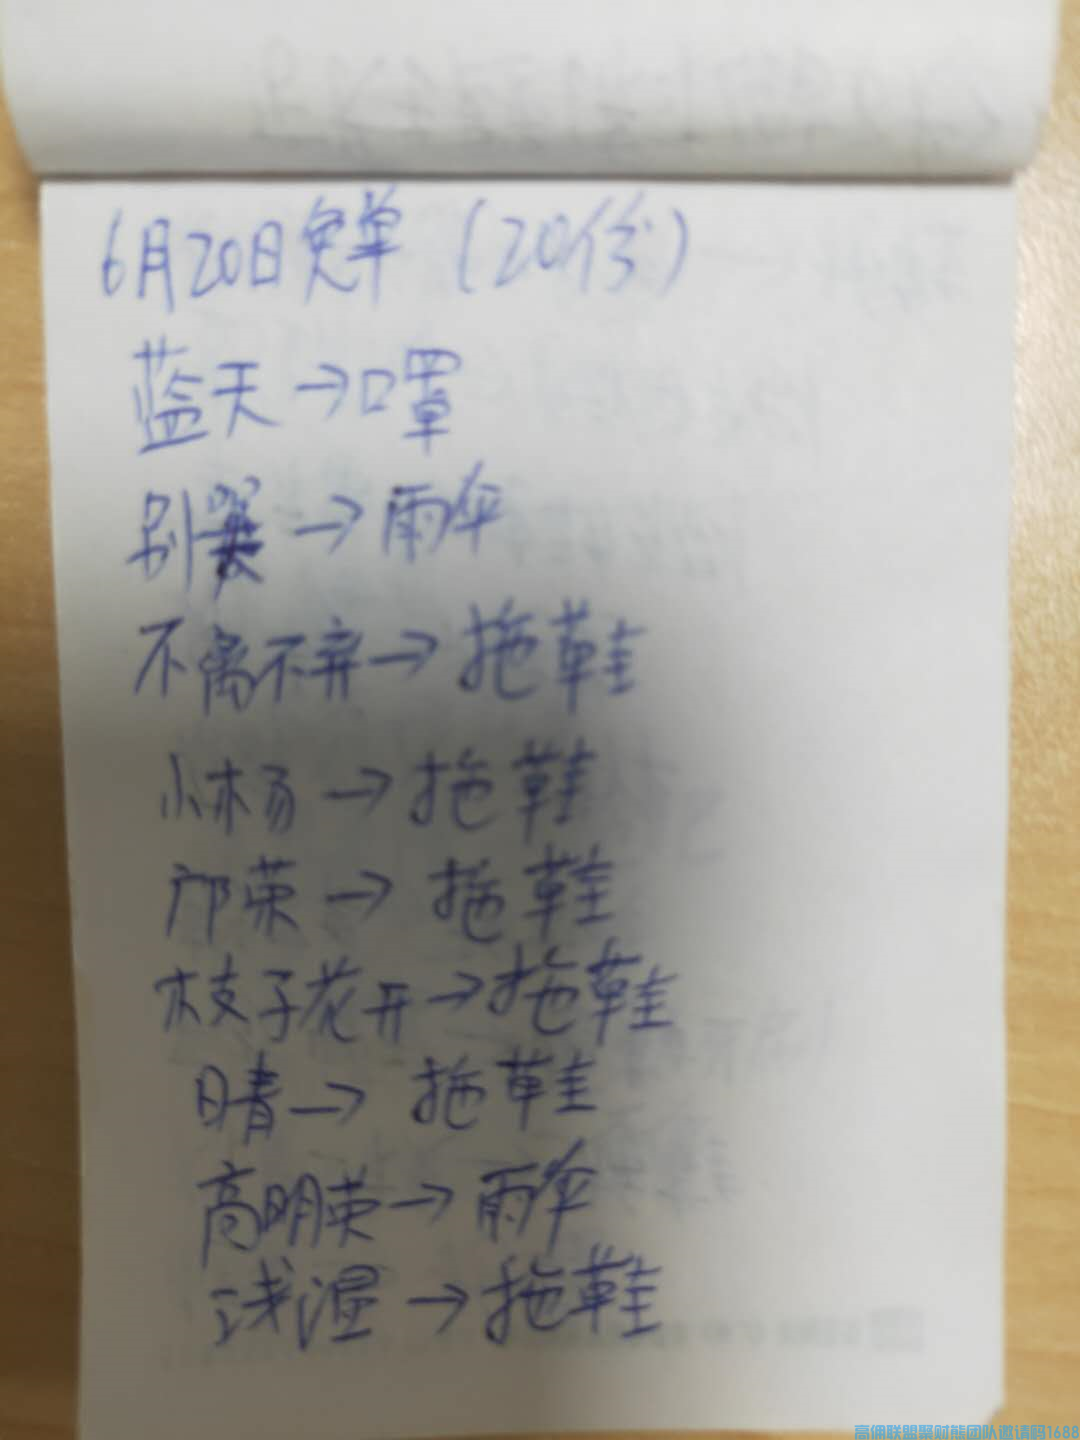 6月20日免单（20份）
蓝天→口罩
别→雨伞
不离不弃→拖鞋
小杨→拖鞋
邝荣→拖鞋
枝子花开→拖鞋
晴→拖鞋
高明英→雨伞
浅湿→拖鞋
高佣联盟聚财熊团队邀请码1688